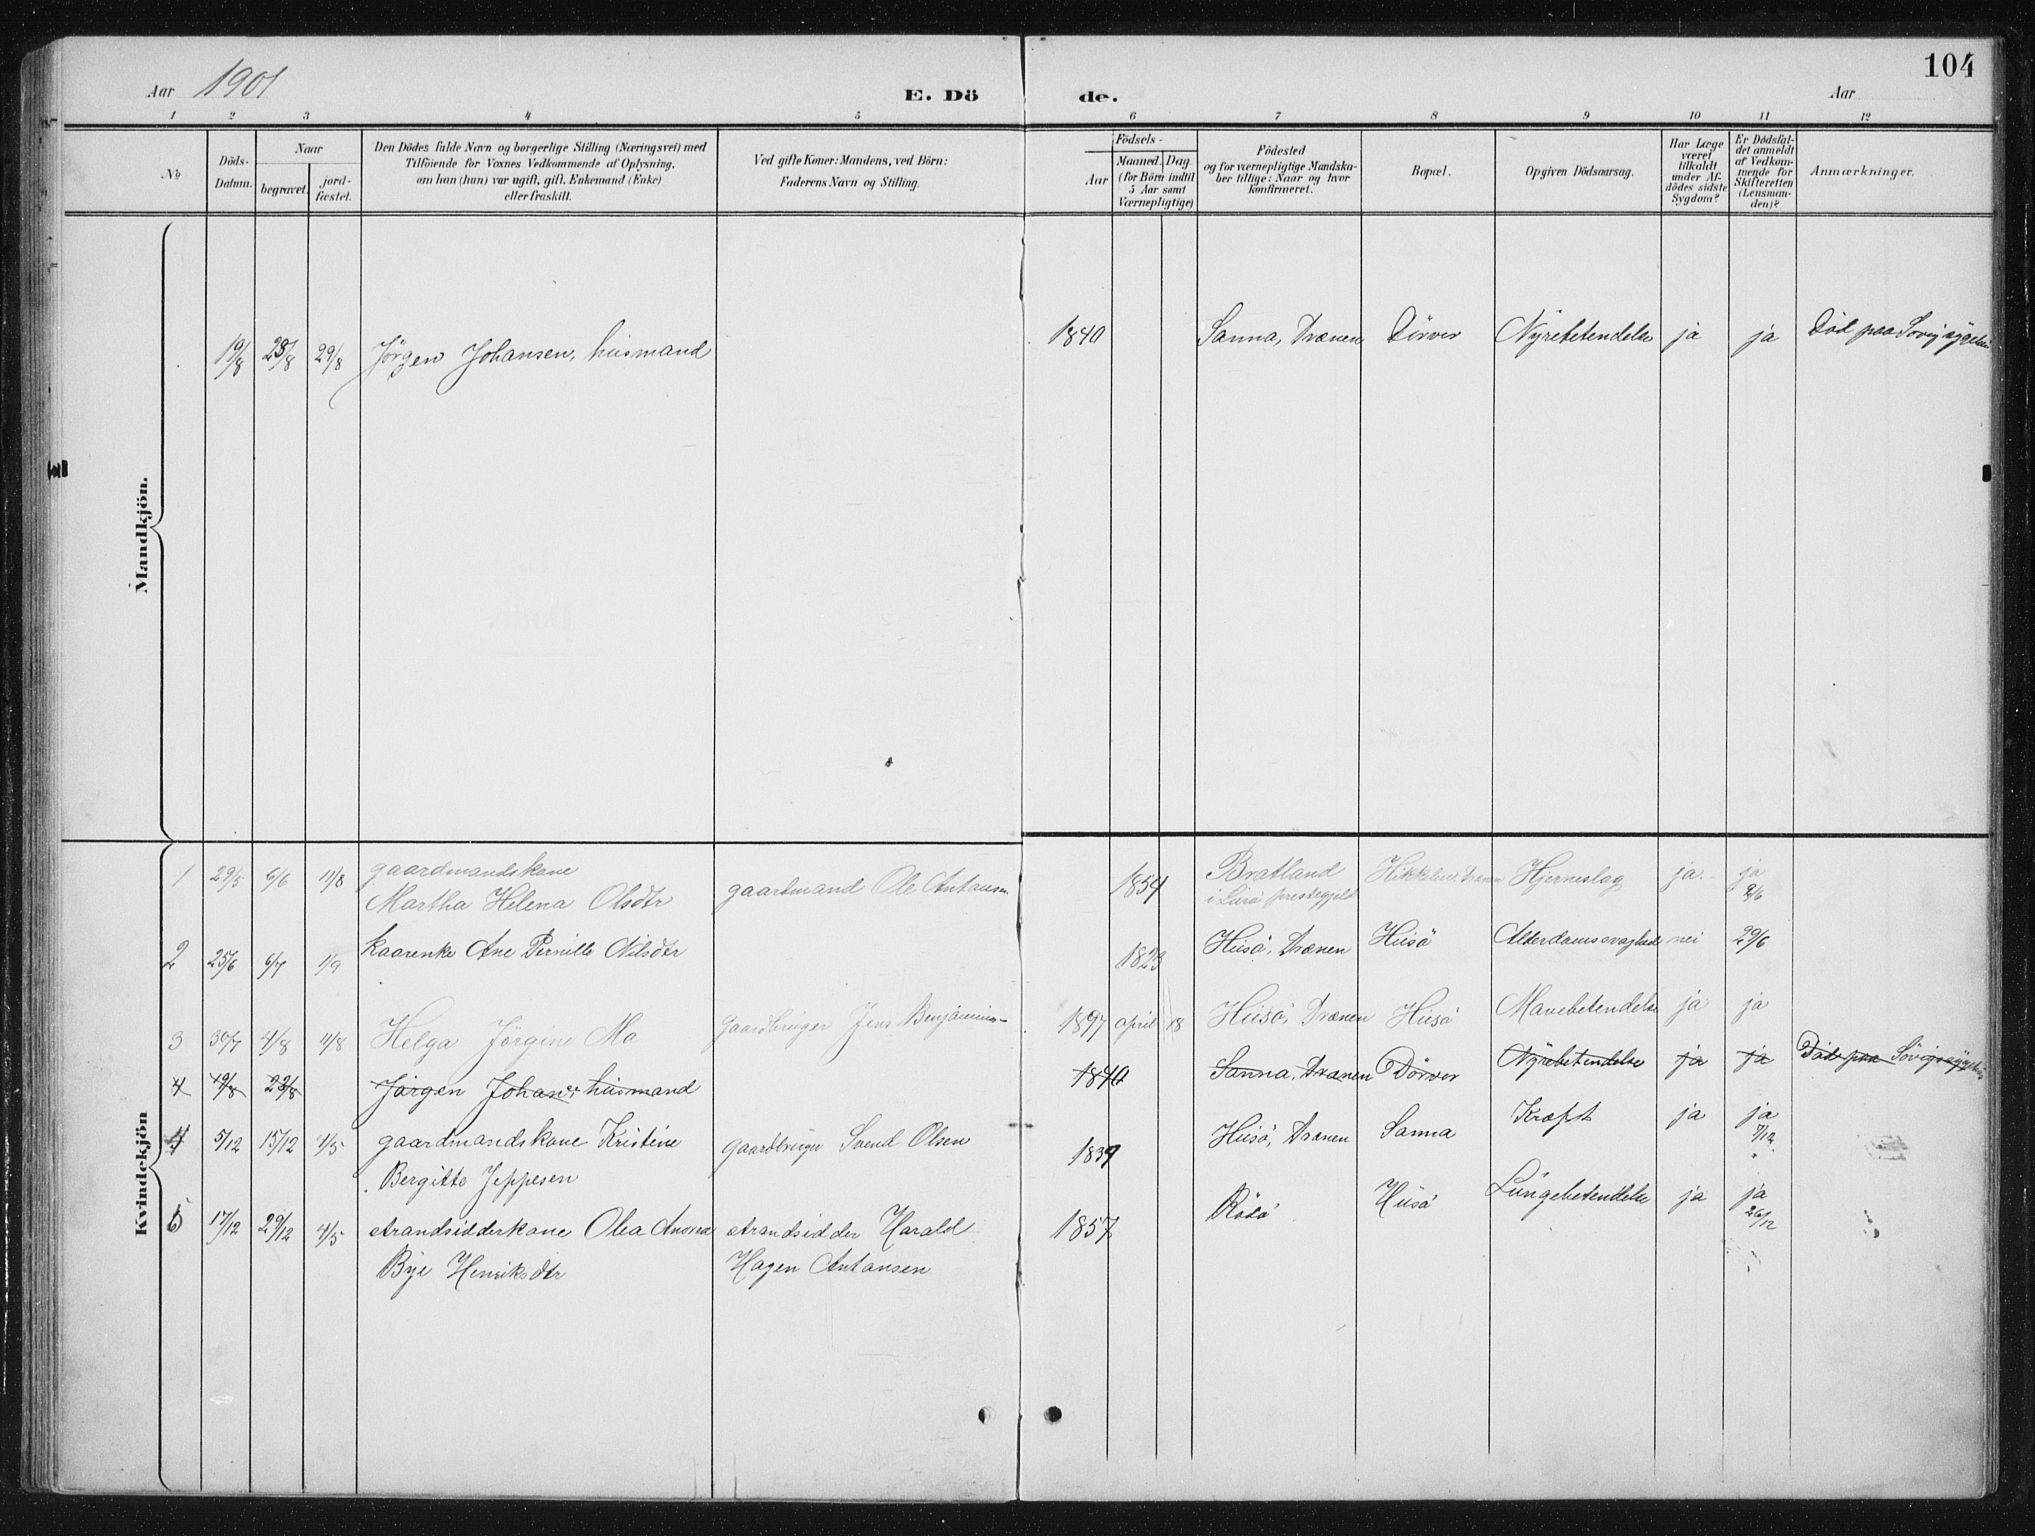 104
Aar 1901
E. Dö
de.
Aar
1 2 3 4 5 6 7 8 9 10 11 12
No
Döds-Datum.
Naar
begravet.
jord-fæstet.
Den Dödes fulde Navn og borgerlige Stilling (Næringsvei) med
Tilföiende for Voxnes Vedkommende af Oplysning,
om han (hun) var ugift, gift, Enkemand (Enke)
eller fraskilt.
Ved gifte Koner: Mandens, ved Börn:
Faderens Navn og Stilling.
Födsels-
Aar
Maaned. Dag.
(for Börn indtil
5 Aar samt
Værnepligtige)
Födested
og for værnepligtige Mandska-
ber tillige: Naar og hvor
konfirmeret.
Bopæl.
Opgiven Dödsaarsag.
Har Læge
været
tilkaldt
under Af-
dödes sidste
Sygdom?
Er Dödsfal-
det anmeldt
af Vedkom-
mende for
Skifteretten
(Lensman-
den)?
Anmærkninger.
Mandkjön.
19/8 28/8 29/8 Jörgen Johansen, husmand 1840 Sanna, Trænen Dörvær Nyrebetendelse ja ja Död paa Sövig sygehus
Kvindekjön
1 29/5 6/6 11/8 gaardmandskone
Martha Helena Olsdtr gaardmand Ole Antonsen 1854 Bratland
i Lurö prestegjeld Trænen Hjerneslag ja ja
2/6
2 25/6 6/7 1/9 kaarenke Ane Pernille Nilsdtr 1823 Husö, Trænen Husö Alderdomssvaghed nei 29/6
3 30/7 4/8 11/8 Helga Jörgine Mo gaardbruger Jens Benjamin- 1897 april 18 Husö, Trænen Husö Mavebetendelse ja ja
4 19/8 28/8 Jörgen Johans. husmand 1840 Sanna, Trænen Dörvær Nyrebetendelse ja ja Död paa Sövig sygehus
4 5/12 15/12 4/5 gaardmandskone Kristine
Bergitte Jeppesen gaardbruger Svend Olsen 1839 Husö, Trænen Sanna Kræft ja ja
7/12
5 17/12 29/12 4/5 strandsidderkone Olea Andrea
Bye Henriksdtr strandsidder Harald
Hagen Antonsen 1857 Rödö Husö Lungebetendelse ja ja
26/12